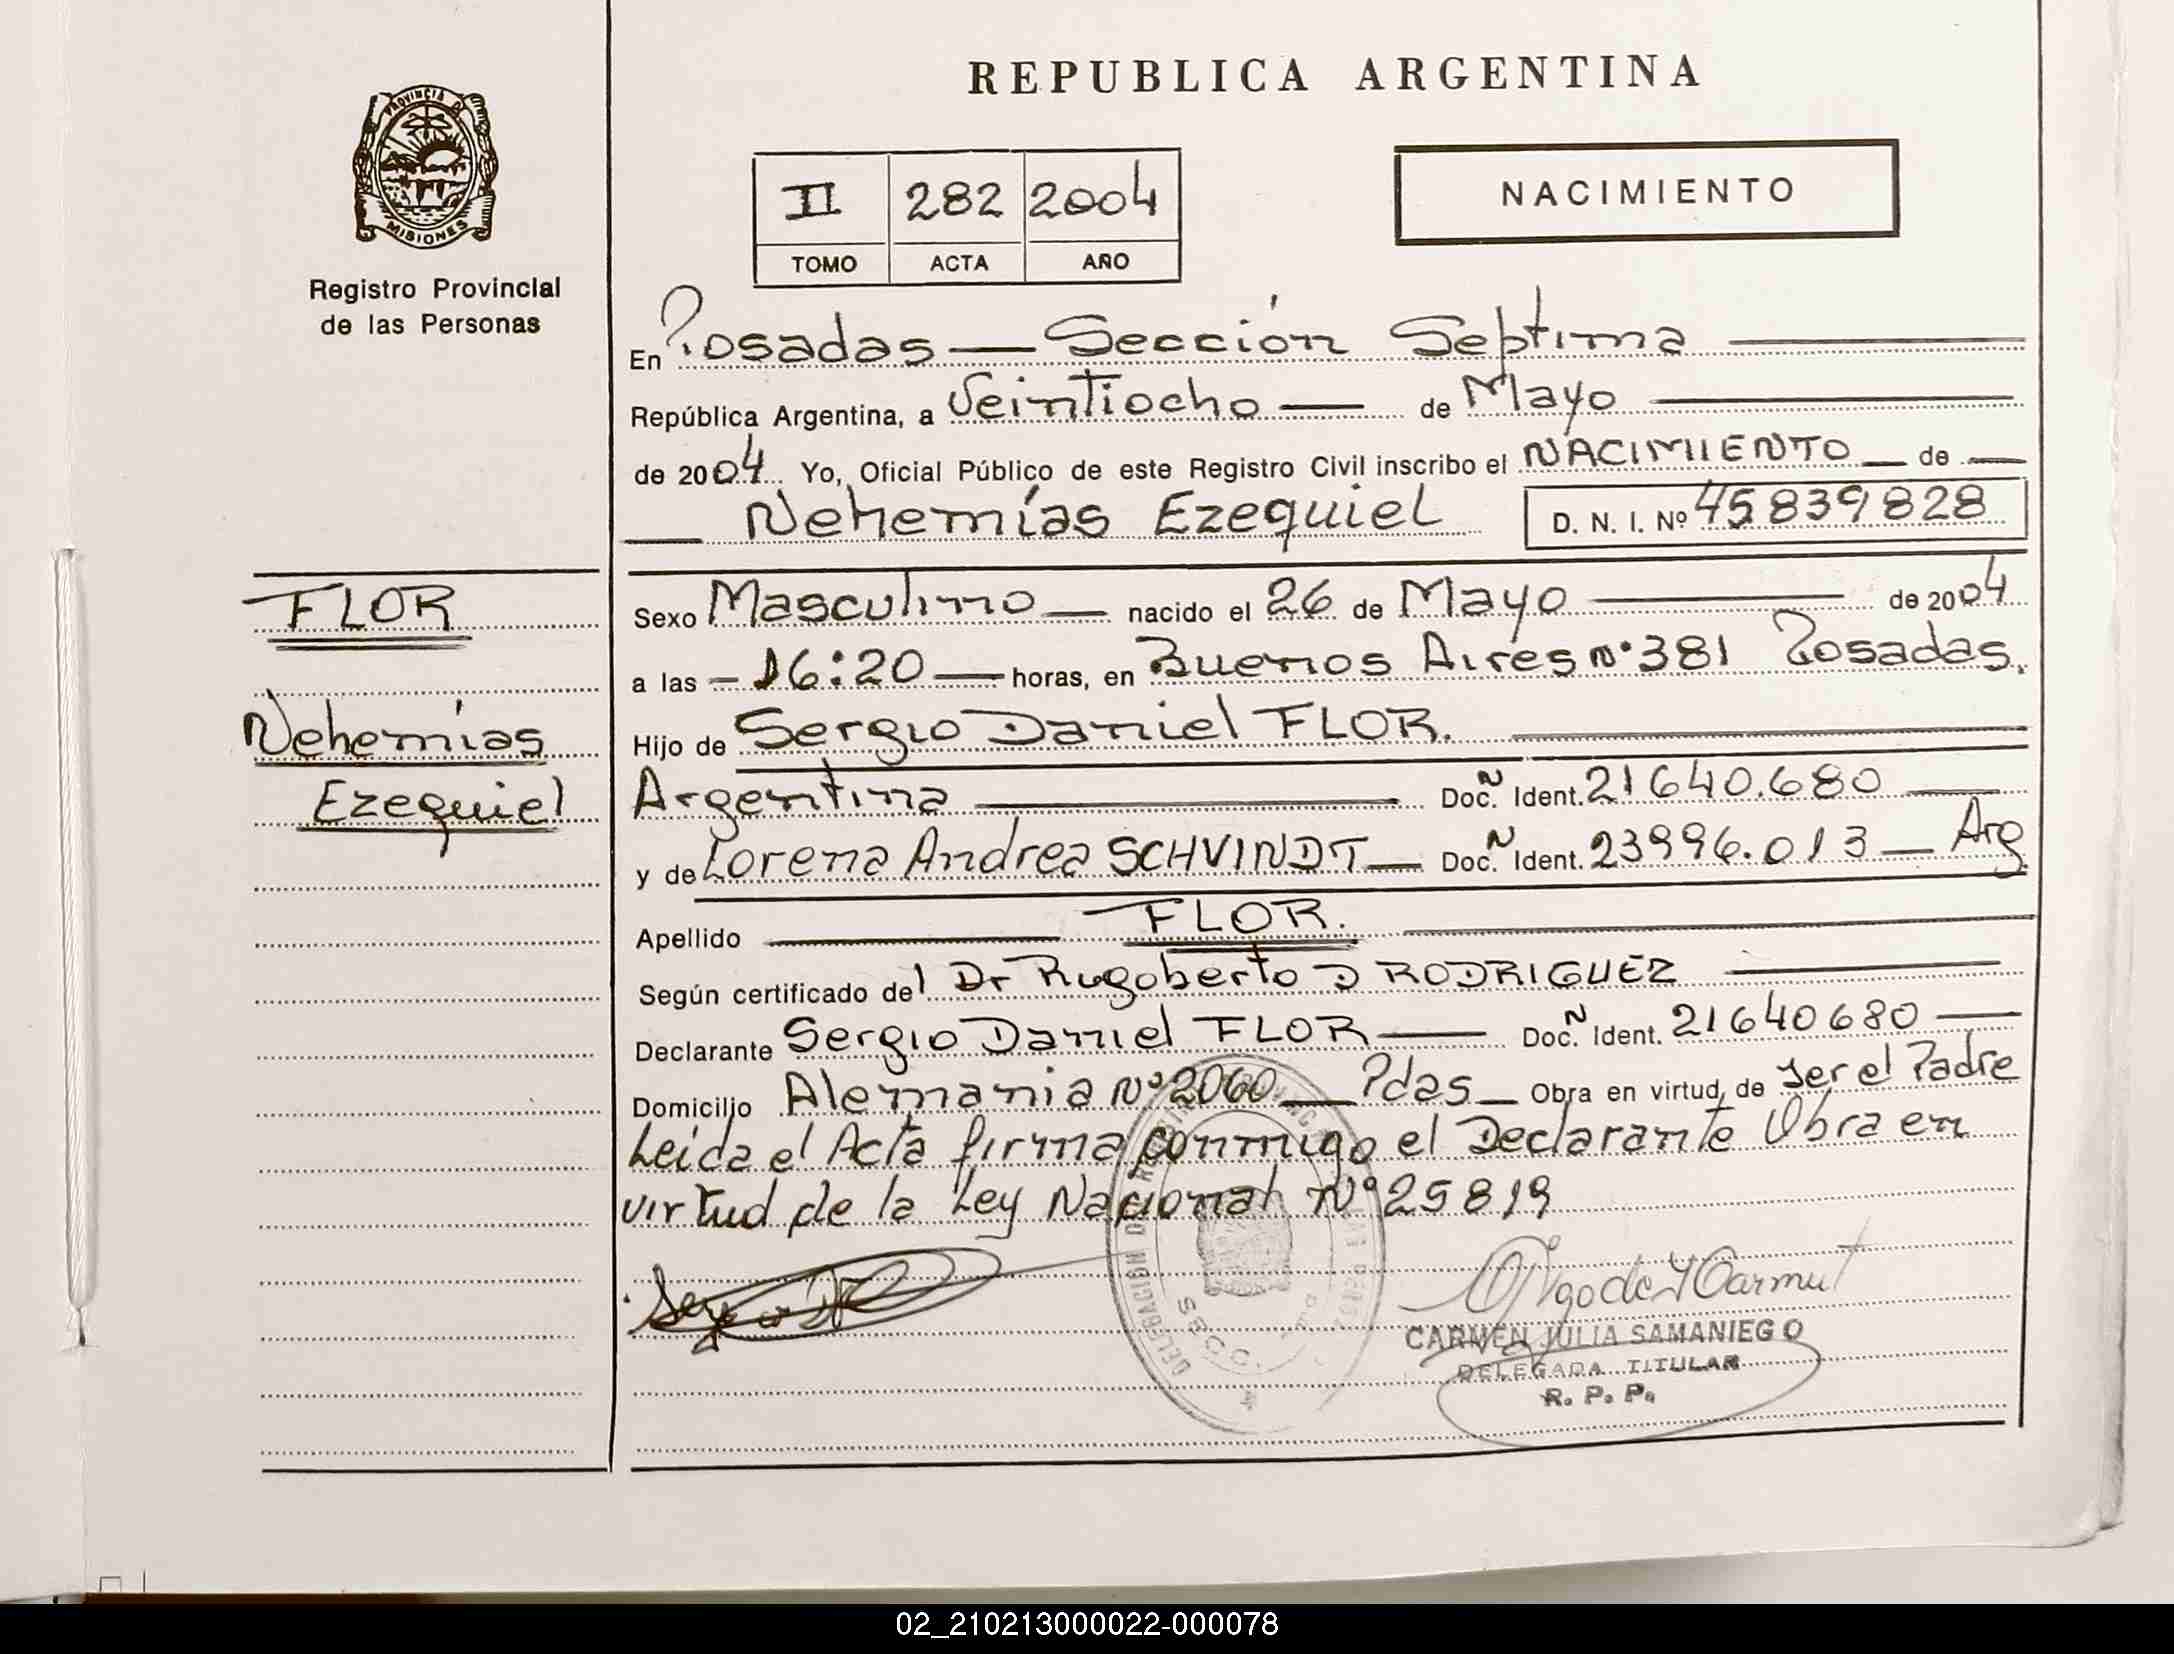 PROVINCIA D
MISIONES
Registro Provincial
de las Personas
REPUBLICA ARGENTINA
II 282 2004
TOMO ACTA AÑO
NACIMIENTO
En Posadas — Sección Septima
República Argentina, a Veintiocho — de Mayo
de 2004. Yo, Oficial Público de este Registro Civil inscribo el NACIMIENTO de
Nehemías Ezequiel D. N. I. Nº 45839828
FLOR
Nehemías
Ezequiel
Sexo Masculino — nacido el 26 de Mayo de 2004
a las — 16:20 — horas, en Buenos Aires Nº 381 Posadas.
Hijo de Sergio Daniel FLOR.
Argentina Doc. N Ident. 21640.680
y de Lorena Andrea SCHVINDT — Doc. N Ident. 23996.013 — Arg
Apellido FLOR.
Según certificado del Dr Rugoberto D RODRIGUEZ
Declarante Sergio Daniel FLOR — Doc. N Ident. 21640680
Domicilio Alemania Nº 2060 — Pdas — Obra en virtud, de Ser el Padre
Leida el Acta firma conmigo el Declarante Obra en
virtud de la Ley Nacional Nº 25819
CARMEN JULIA SAMANIEGO
DELEGADA TITULAR
R. P. P.
02_210213000022-000078